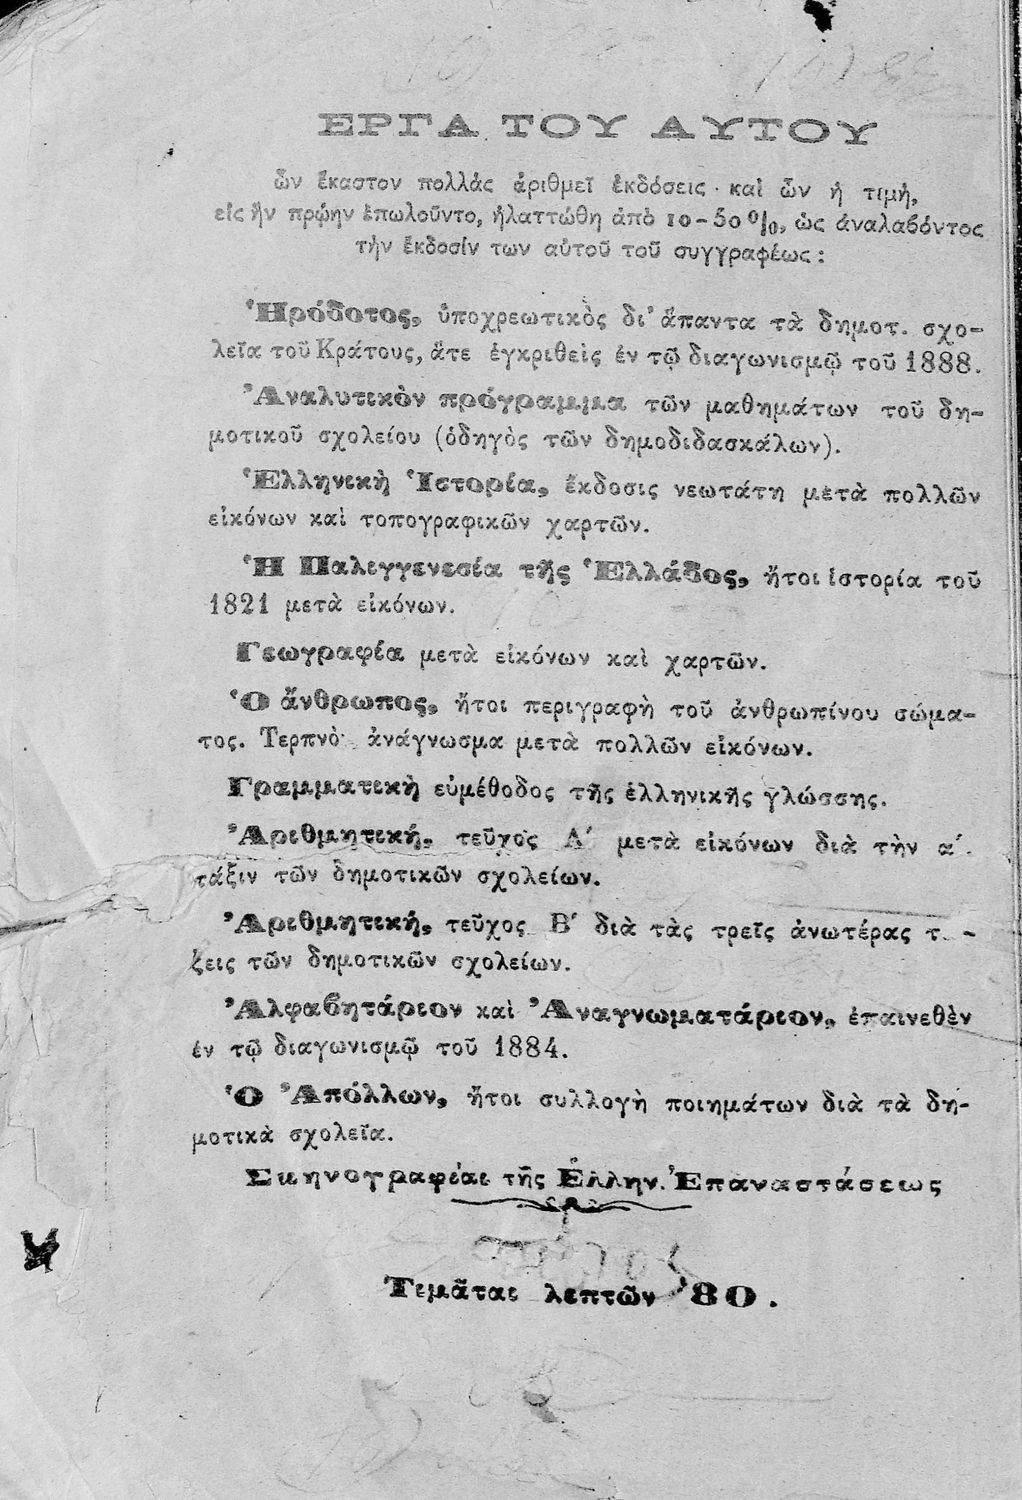 ΕΡΓΑ ΤΟΥ ΑΥΤΟΥ
ὧν ἕκαστον πολλὰς ἀριθμεῖ ἐκδόσεις· καὶ ὧν ἡ τιμή,
εἰς ἣν πρῴην ἐπωλοῦντο, ἠλαττώθη ἀπὸ 10-50 %, ὡς ἀναλαβόντος
τὴν ἔκδοσίν των αὐτοῦ τοῦ συγγραφέως:
Ἡρόδοτος, ὑποχρεωτικὸς δι' ἅπαντα τὰ δημοτ. σχο-
λεῖα τοῦ Κράτους, ἅτε ἐγκριθεὶς ἐν τῷ διαγωνισμῷ τοῦ 1888.
Ἀναλυτικὸν πρόγραμμα τῶν μαθημάτων τοῦ δη-
μοτικοῦ σχολείου (ὁδηγὸς τῶν δημοδιδασκάλων).
Ἑλληνικὴ Ἱστορία, ἔκδοσις νεωτάτη μετὰ πολλῶν
εἰκόνων καὶ τοπογραφικῶν χαρτῶν.
Ἡ Παλιγγενεσία τῆς Ἑλλάδος, ἤτοι ἱστορία τοῦ
1821 μετὰ εἰκόνων.
Γεωγραφία μετὰ εἰκόνων καὶ χαρτῶν.
Ὁ ἄνθρωπος, ἤτοι περιγραφὴ τοῦ ἀνθρωπίνου σώμα-
τος. Τερπνὸ ἀνάγνωσμα μετὰ πολλῶν εἰκόνων.
Γραμματικὴ εὐμέθοδος τῆς ἑλληνικῆς γλώσσης.
Ἀριθμητική, τεῦχος Α' μετὰ εἰκόνων διὰ τὴν α'.
τάξιν τῶν δημοτικῶν σχολείων.
Ἀριθμητική, τεῦχος Β' διὰ τὰς τρεῖς ἀνωτέρας τ -
ξεις τῶν δημοτικῶν σχολείων.
Ἀλφαβητάριον καὶ Ἀναγνωματάριον, ἐπαινεθὲν
ἐν τῷ διαγωνισμῷ τοῦ 1884.
Ὁ Ἀπόλλων, ἤτοι συλλογὴ ποιημάτων διὰ τὰ δη-
μοτικὰ σχολεῖα.
Σκηνογραφίαι τῆς Ἑλλην. Ἐπαναστάσεως
Τιμᾶται λεπτῶν 80.